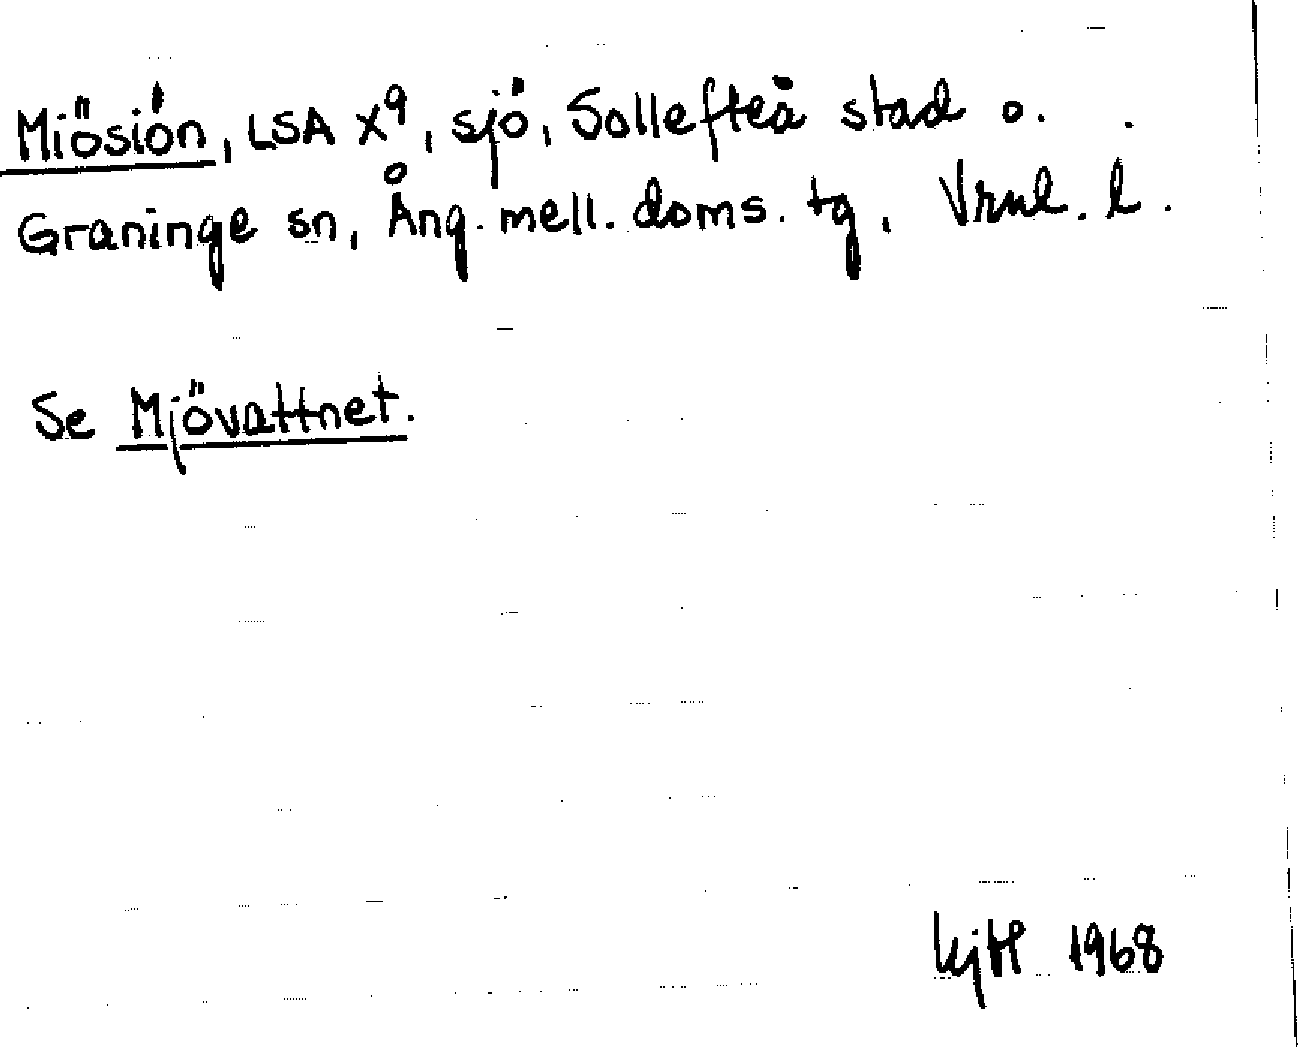 Miösiön, LSA X9, sjö, Sollefteå stad o.
Graninge sn, Ång. mell. doms. tg, Vrnl. l.
Se Mjövattnet.
1968